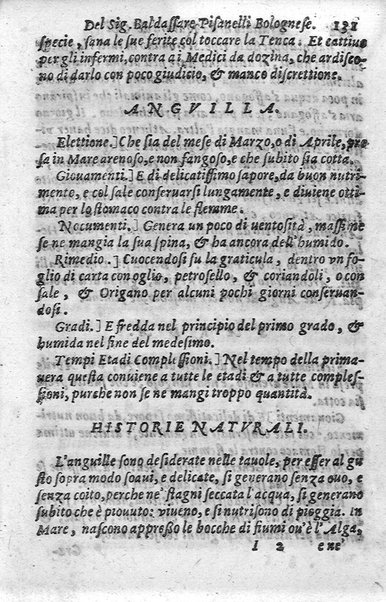 Del Sig. Baldassare Pisanelli Bolognese. 131
specie, sana le sue ferite col toccare la Tenca. Et cattiua
per gli infermi, contra a i Medici da dozina, che ardisco-
no di darlo con poco giudicio, & manco discrettione.
ANGVILLA.
Elettione.] Che sia del mese di Marzo, o di Aprile, pre
sa in Mare arenoso, e non fangoso, e che subito sia cotta.
Giouamenti.] E di delicatissimo sapore, da buon nutri-
mento, e col sale conseruarsi lungamente, e diuiene otti-
ma per lo stomaco contra le flemme.
Nocumenti.] Genera un poco di uentosità, massime
se ne mangia la sua spina, & ha ancora dell'humido.
Rimedio.] Cuocendosi fu la graticula, dentro vn fo-
glio di carta con oglio, petrosello, & coriandoli, o con
sale, & Origano per alcuni pochi giorni conseruan-
dosi.
Gradi.] E fredda nel principio del primo grado, &
humida nel fine del medesimo.
Tempi Etadi Complessioni.] Nel tempo della prima-
uera questa conuiene a tutte le etadi & a tutte comples-
sioni, purche non se ne mangi troppo quantità.
HISTORIE NATVRALI.
L'anguille sono desiderate nelle tauole, per esser al gu
sto sopra modo soaui, e delicate, si generano senza ouo, e
senza coito, perche ne' stagni seccata l'acqua, si generano
subito che è piouuto: viueno, e si nutrisono di pioggia. In
Mare, nascono appresso le bocche di fiumi ou'è l'Alga,
I 2 ene'